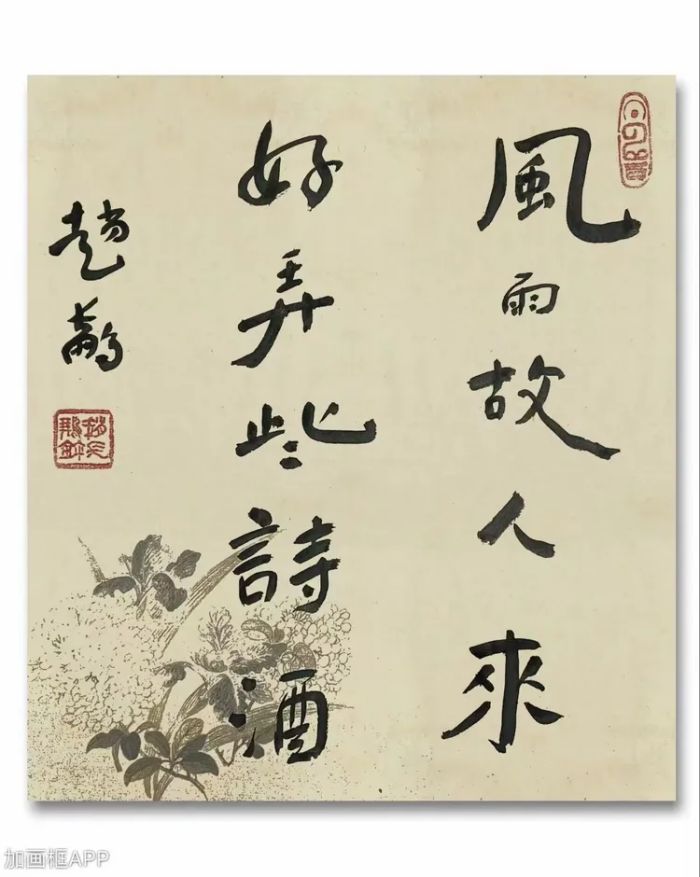 風雨故人來
好弄些詩酒
趙
加画框APP